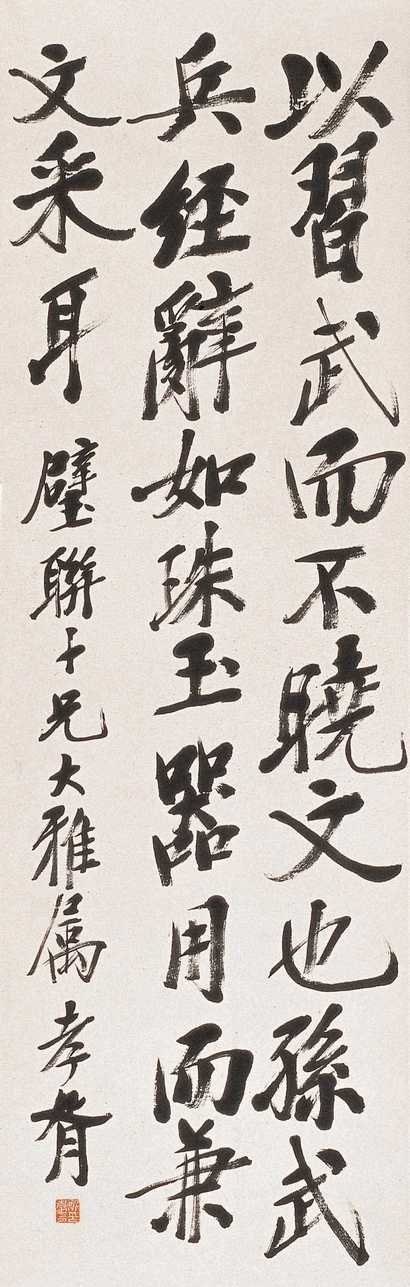 以習武而不曉文也孫武
兵經辭如珠玉器用而兼
文采耳
璧聯仁兄大雅属 孝胥